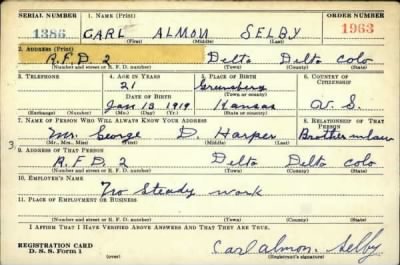 SERIAL NUMBER 1. NAME (Print) ORDER NUMBER
1386 CARL ALMON SELBY 1963
(First) (Middle) (Last)
2. ADDRESS (Print)
R.F.D. 2 Delta Delta Colo
(Number and street or R. F. D. number) (Town) (County) (State)
3. TELEPHONE 4. AGE IN YEARS 5. PLACE OF BIRTH 6. COUNTRY OF CITIZENSHIP
21
(Town or county)
DATE OF BIRTH
Jan 13 1919 Kansas U. S.
(Exchange) (Number) (Mo.) (Day) (Yr.) (State or country)
7. NAME OF PERSON WHO WILL ALWAYS KNOW YOUR ADDRESS 8. RELATIONSHIP OF THAT PERSON
Mr. George D. Harper Brother in law
(Mr., Mrs., Miss) (First) (Middle) (Last)
9. ADDRESS OF THAT PERSON
R.F.D. 2 Delta Delta Colo
(Number and street or R. F. D. number) (Town) (County) (State)
10. EMPLOYER'S NAME
No Steady work
11. PLACE OF EMPLOYMENT OR BUSINESS
(Number and street or R. F. D. number) (Town) (County) (State)
I AFFIRM THAT I HAVE VERIFIED ABOVE ANSWERS AND THAT THEY ARE TRUE.
REGISTRATION CARD
D. S. S. Form 1 (over) Carl almon. Selby
(Registrant's signature)